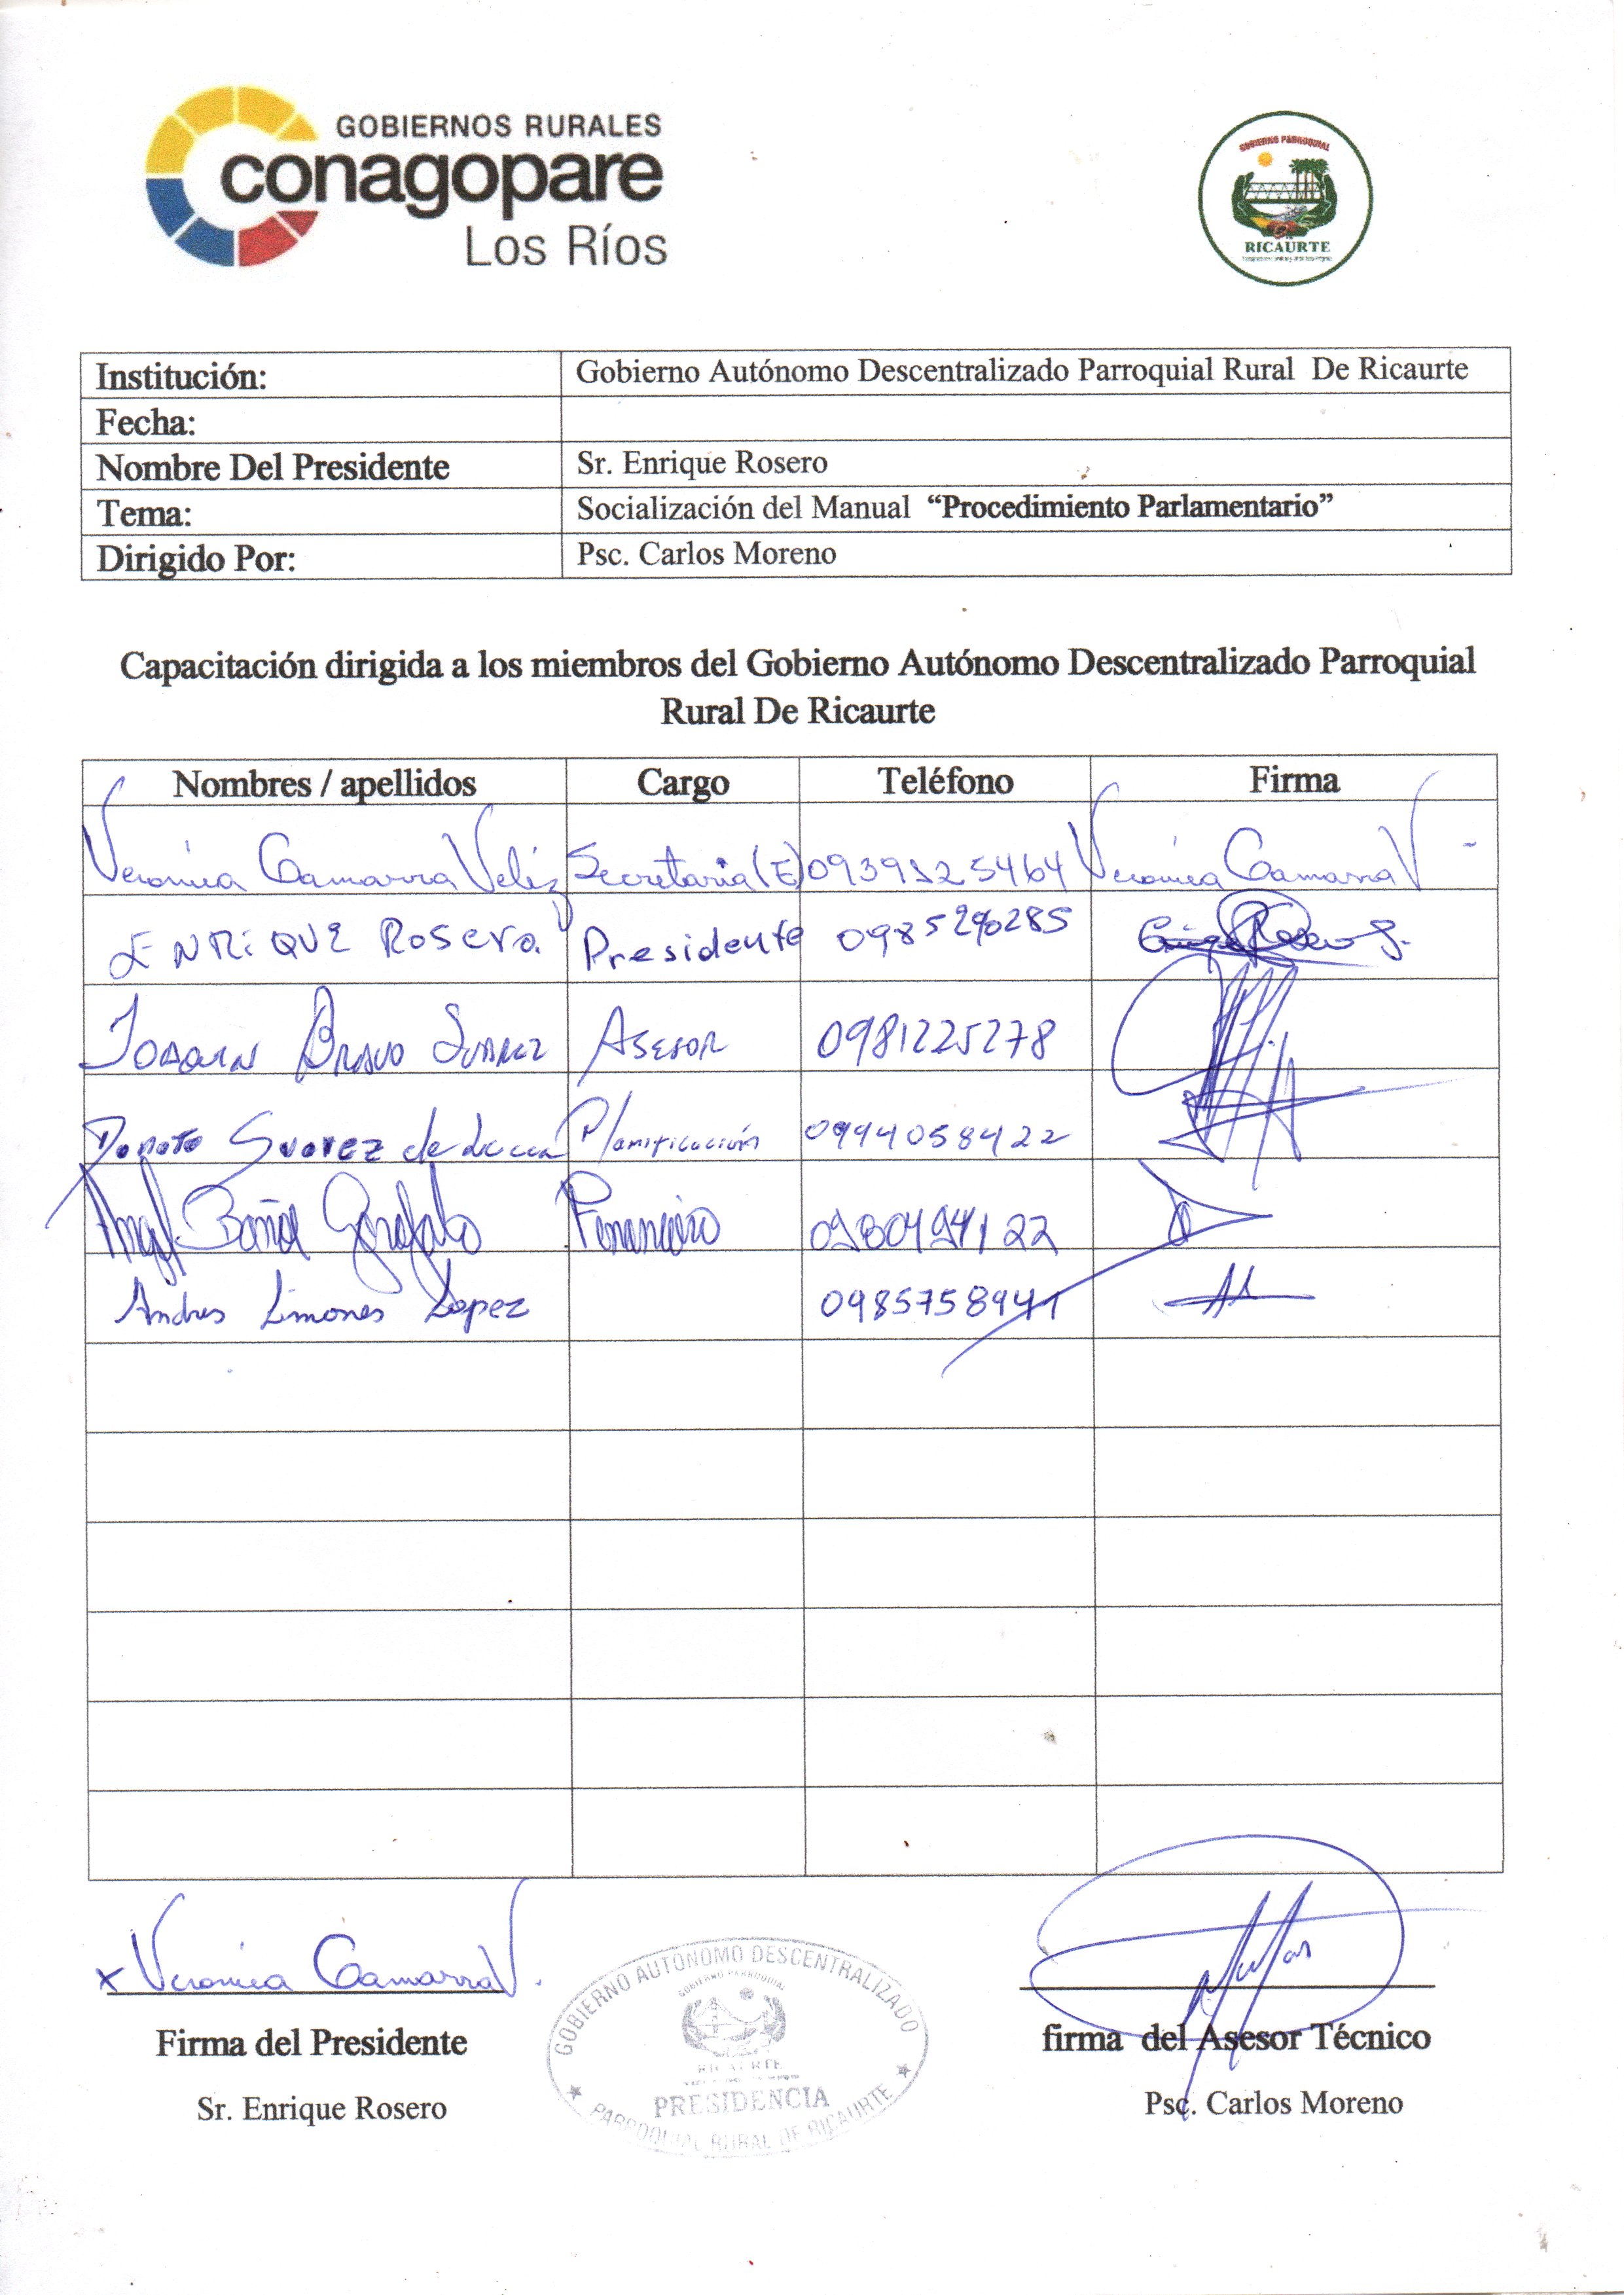 GOBIERNOS RURALES
conagopare
Los Ríos
GOBIERNO PARROQUIAL
RICAURTE
Institución: Gobierno Autónomo Descentralizado Parroquial Rural De Ricaurte
Fecha:
Nombre Del Presidente Sr. Enrique Rosero
Tema: Socialización del Manual “Procedimiento Parlamentario”
Dirigido Por: Psc. Carlos Moreno
Capacitación dirigida a los miembros del Gobierno Autónomo Descentralizado Parroquial
Rural De Ricaurte
Nombres / apellidos Cargo Teléfono Firma
Veronica Camarra Veliz Secretaria (E) 0939125464 Veronica Camarra V
ENRiQUE Rosero Presidente
Joaquin Bravo Suarez Asesor 0981225278
Donato Suarez de Planificación 0994058422
Angl. Garofalo Financiero
Andres Limones Lopez 0985758941
x Veronica Camarra V.
Firma del Presidente firma del Asesor Técnico
Sr. Enrique Rosero Psc. Carlos Moreno
GOBIERNO AUTONOMO DESCENTRALIZADO
GOBIERNO PARROQUIAL
RICAURTE
PRESIDENCIA
PARROQUIAL RURAL DE RICAURTE